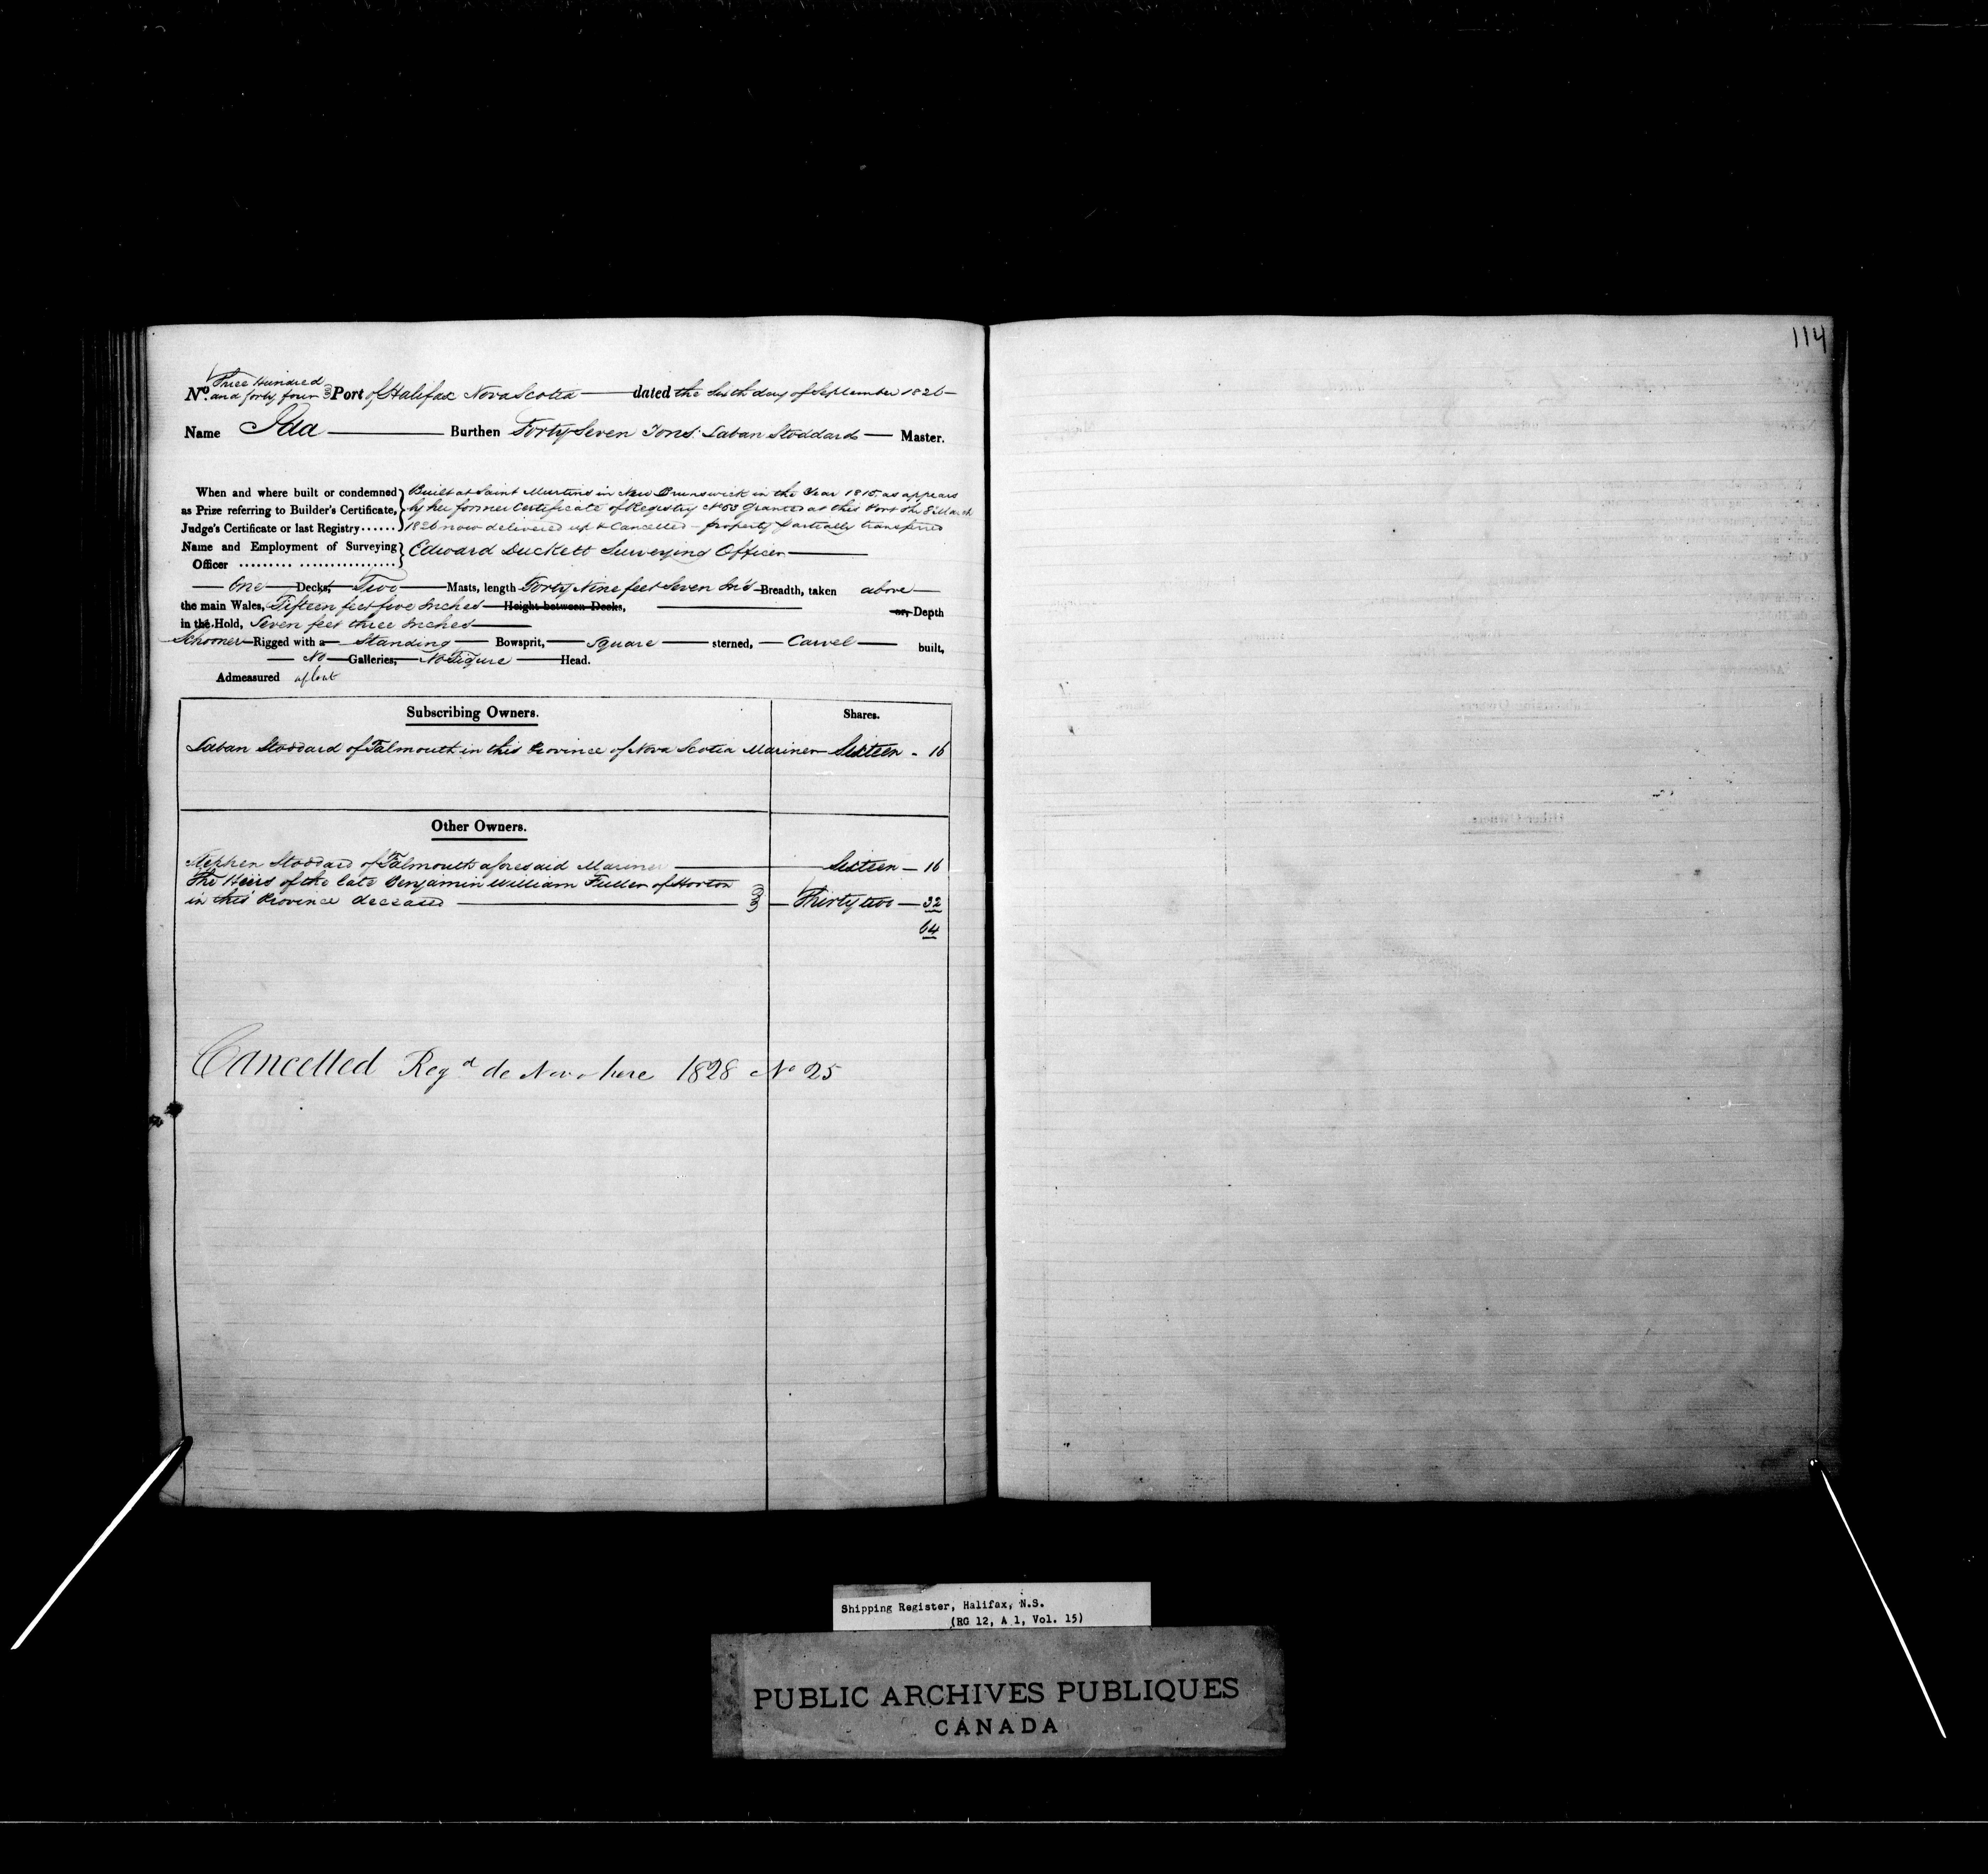 114
Nº. Three Hundred and forty four Port of Halifax Nova Scotia dated the Sixth day of September 1826
Name Ida Burthen Forty Seven Tons Laban Stoddard Master.
When and where built or condemned as Prize referring to Builder's Certificate, Judge's Certificate or last Registry......
Built at Saint Martins in New Brunswick in the Year 1815, as appears
by her former Certificate of Registry Nº 53 granted at this Port the 8 March
1826 now delivered up & Cancelled - property partially transferred
Name and Employment of Surveying Officer ......... ................ Edward Duckett Surveying Officer
One Decks, Two Masts, length Forty Nine feet Seven In's Breadth, taken above
the main Wales, Fifteen feet five Inches Height between Decks, or, Depth
in the Hold, Seven feet three Inches
Schooner Rigged with a Standing Bowsprit, Square sterned, Carvel built,
No Galleries, No Figure Head.
Admeasured afloat
Subscribing Owners. Shares.
Laban Stoddard of Falmouth in this Province of Nova Scotia Mariner Sixteen - 16
Other Owners.
Stephen Stoddard of Falmouth aforesaid Mariner Sixteen - 16
The Heirs of the late Benjamin William Fuller of Horton
in this Province deceased Thirty two - 32
64
Cancelled Regd de Novo here 1828 No 25
Shipping Register, Halifax, N.S.
(RG 12, A 1, Vol. 15)
PUBLIC ARCHIVES PUBLIQUES
CANADA